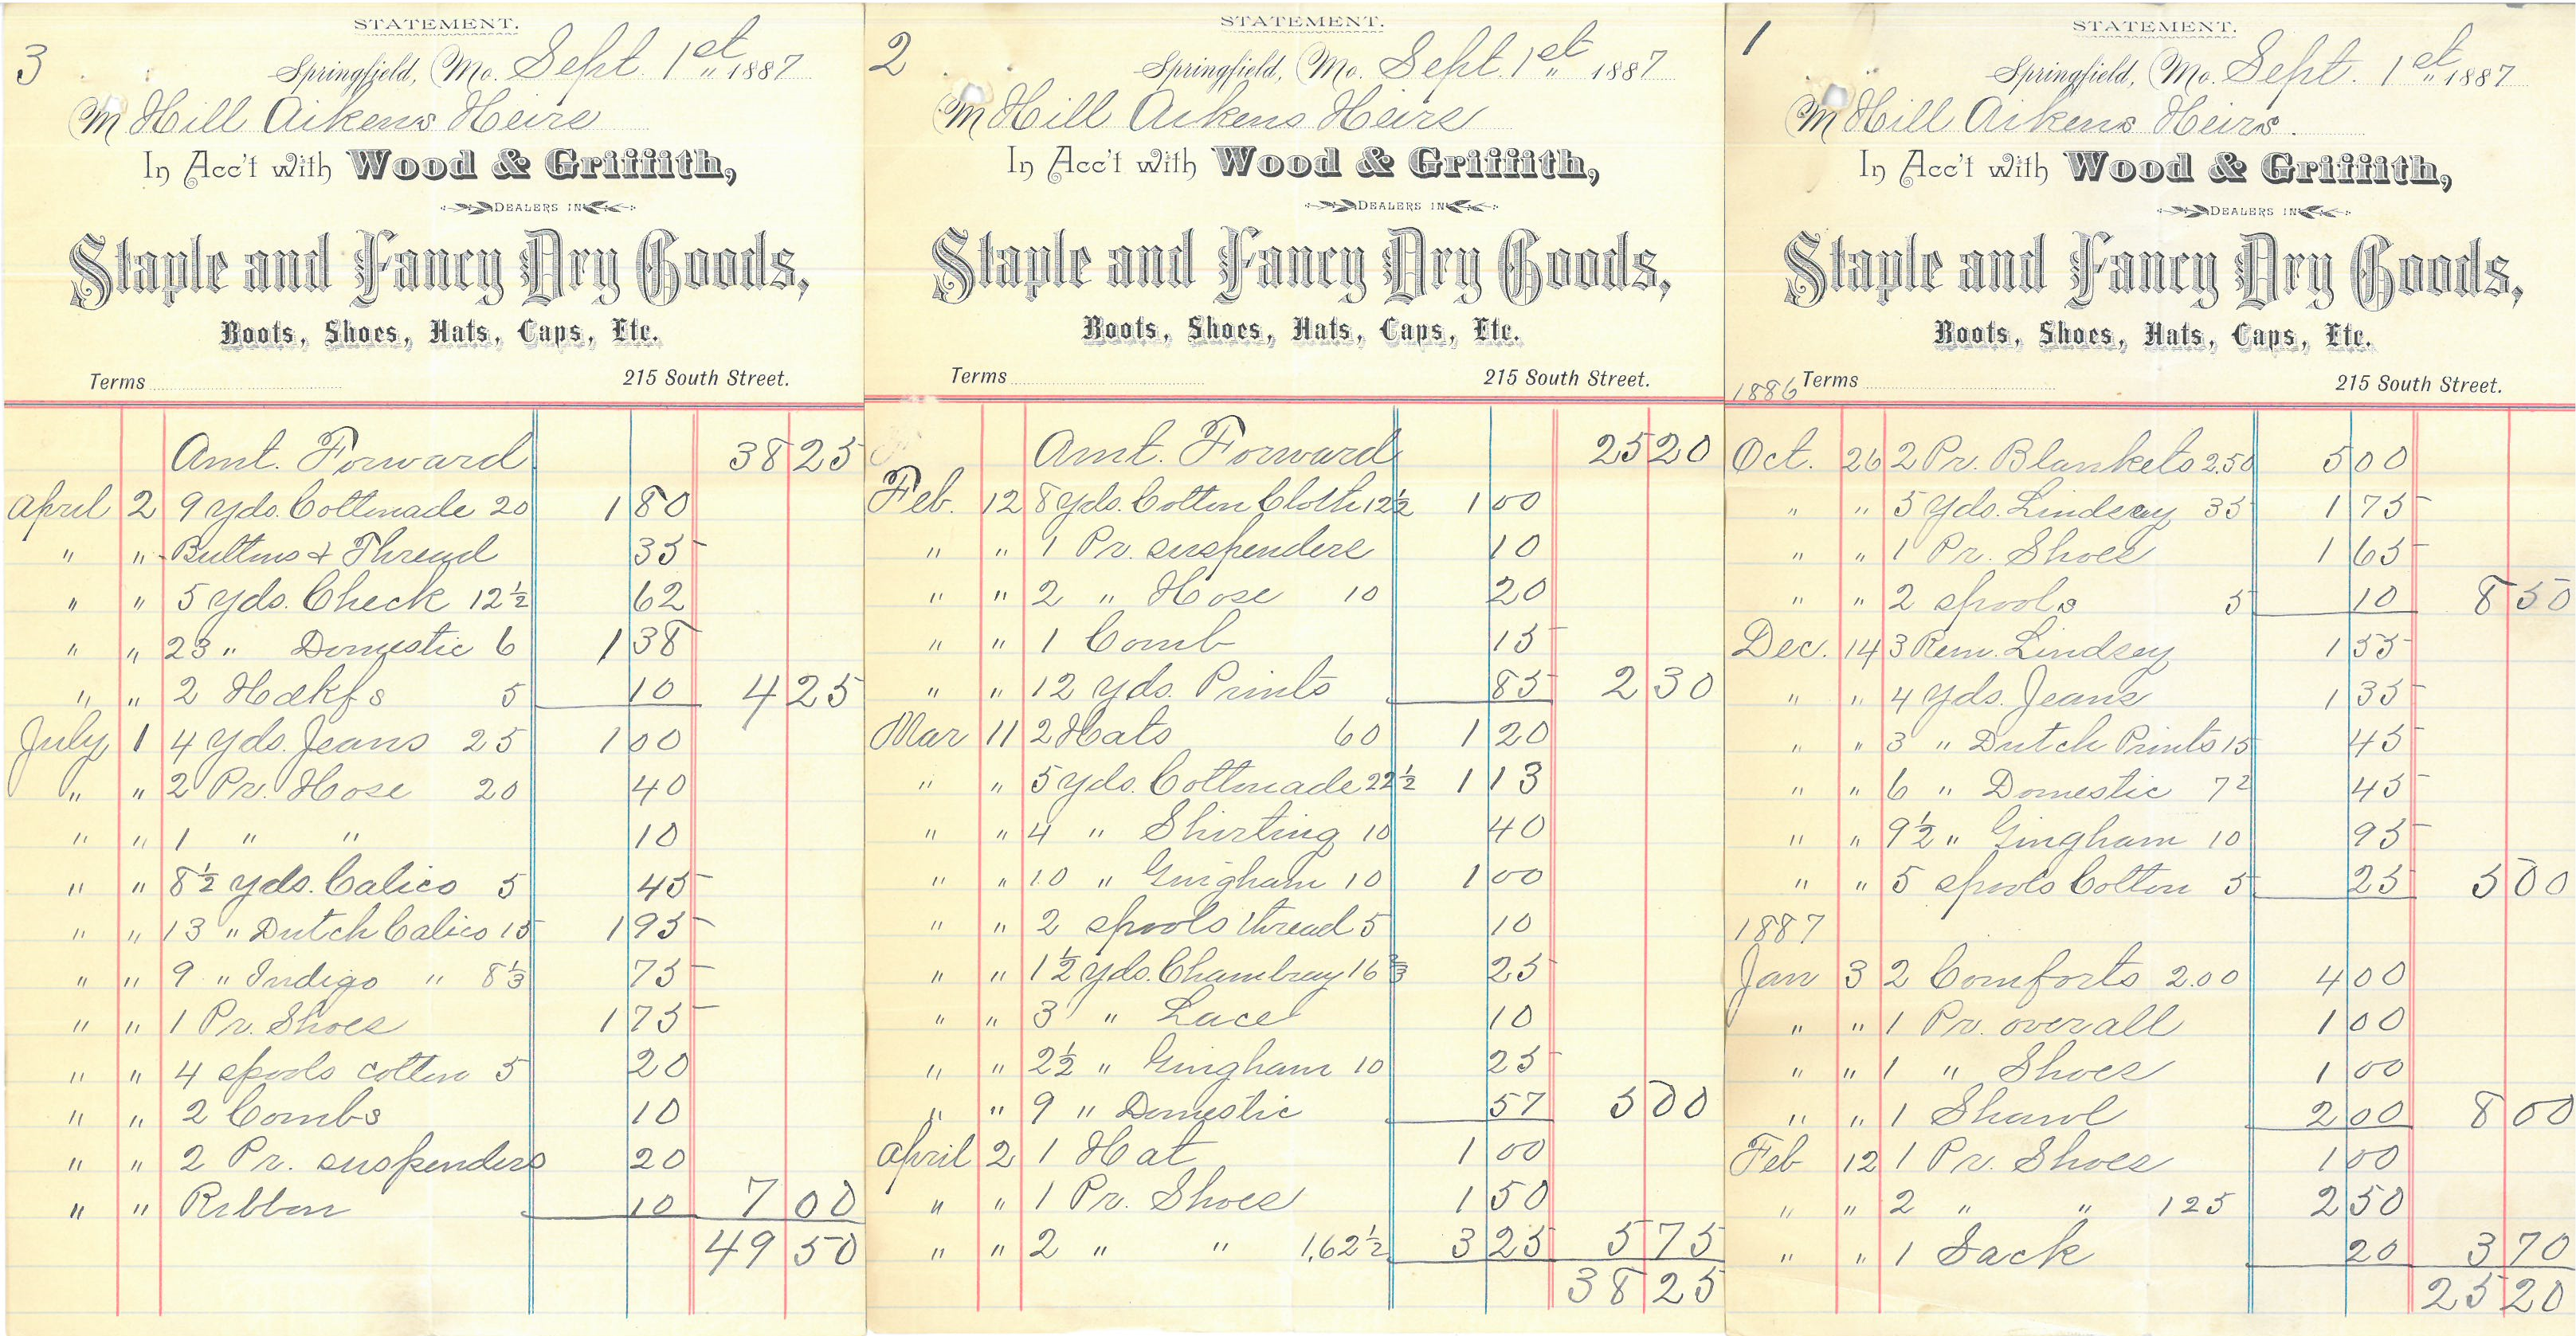 3
STATEMENT.
Springfield, Mo. Sept. 1st 1887
M Hill Aikens Heirs
In Acc't with Wood & Griffith,
DEALERS IN
Staple and Fancy Dry Goods,
Boots, Shoes, Hats, Caps, Etc.
Terms 215 South Street.
Amt. Forward 38 25
April 2 9 yds. Cottonade 20 1 80
" " Buttons & Thread 35
" " 5 yds. Check 12½ 62
" " 23 " Domestic 6 1 38
" " 2 Hdkfs 5 10 4 25
July 1 4 yds. Jeans 25 1 00
" " 2 Pr. Hose 20 40
" " 1 " " 10
" " 8½ yds. Calico 5 45
" " 13 " Dutch Calico 15 1 95
" " 9 " Indigo " 8⅓ 75
" " 1 Pr. Shoes 1 75
" " 4 spools cotton 5 20
" " 2 Combs 10
" " 2 Pr. suspenders 20
" " Ribbon 10 7 00
49 50
2
STATEMENT.
Springfield, Mo. Sept. 1st 1887
M Hill Aikens Heirs
In Acc't with Wood & Griffith,
DEALERS IN
Staple and Fancy Dry Goods,
Boots, Shoes, Hats, Caps, Etc.
Terms 215 South Street.
Amt. Forward 25 20
Feb. 12 8 yds. Cotton Cloth 12½ 1 00
" " 1 Pr. suspenders 10
" " 2 " Hose 10 20
" " 1 Comb 15
" " 12 yds. Prints 85 2 30
Mar 11 2 Hats 60 1 20
" " 5 yds. Cottonade 22½ 1 13
" " 4 " Shirting 10 40
" " 10 " Gingham 10 1 00
" " 2 spools thread 5 10
" " 1½ yds. Chambray 16⅔ 25
" " 3 " Lace 10
" " 2½ " Gingham 10 25
" " 9 " Domestic 57 5 00
April 2 1 Hat 1 00
" " 1 Pr. Shoes 1 50
" " 2 " " 1.62½ 3 25 5 75
38 25
1
STATEMENT.
Springfield, Mo. Sept. 1st 1887
M Hill Aikens Heirs.
In Acc't with Wood & Griffith,
DEALERS IN
Staple and Fancy Dry Goods,
Boots, Shoes, Hats, Caps, Etc.
1886 Terms 215 South Street.
Oct. 26 2 Pr. Blankets 2.50 5 00
" " 5 Yds. Lindsey 35 1 75
" " 1 Pr. Shoes 1 65
" " 2 spools 5 10 8 50
Dec. 14 3 Rem. Lindsey 1 55
" " 4 yds. Jeans 1 35
" " 3 " Dutch Prints 15 45
" " 6 " Domestic 7½ 45
" " 9½ " Gingham 10 95
" " 5 spools Cotton 5 25 5 00
1887
Jan 3 2 Comforts 2.00 4 00
" " 1 Pr. overall 1 00
" " 1 " Shoes 1 00
" " 1 Shawl 2 00 8 00
Feb 12 1 Pr. Shoes 1 00
" " 2 " " 125 2 50
" " 1 Sack 20 3 70
25 20